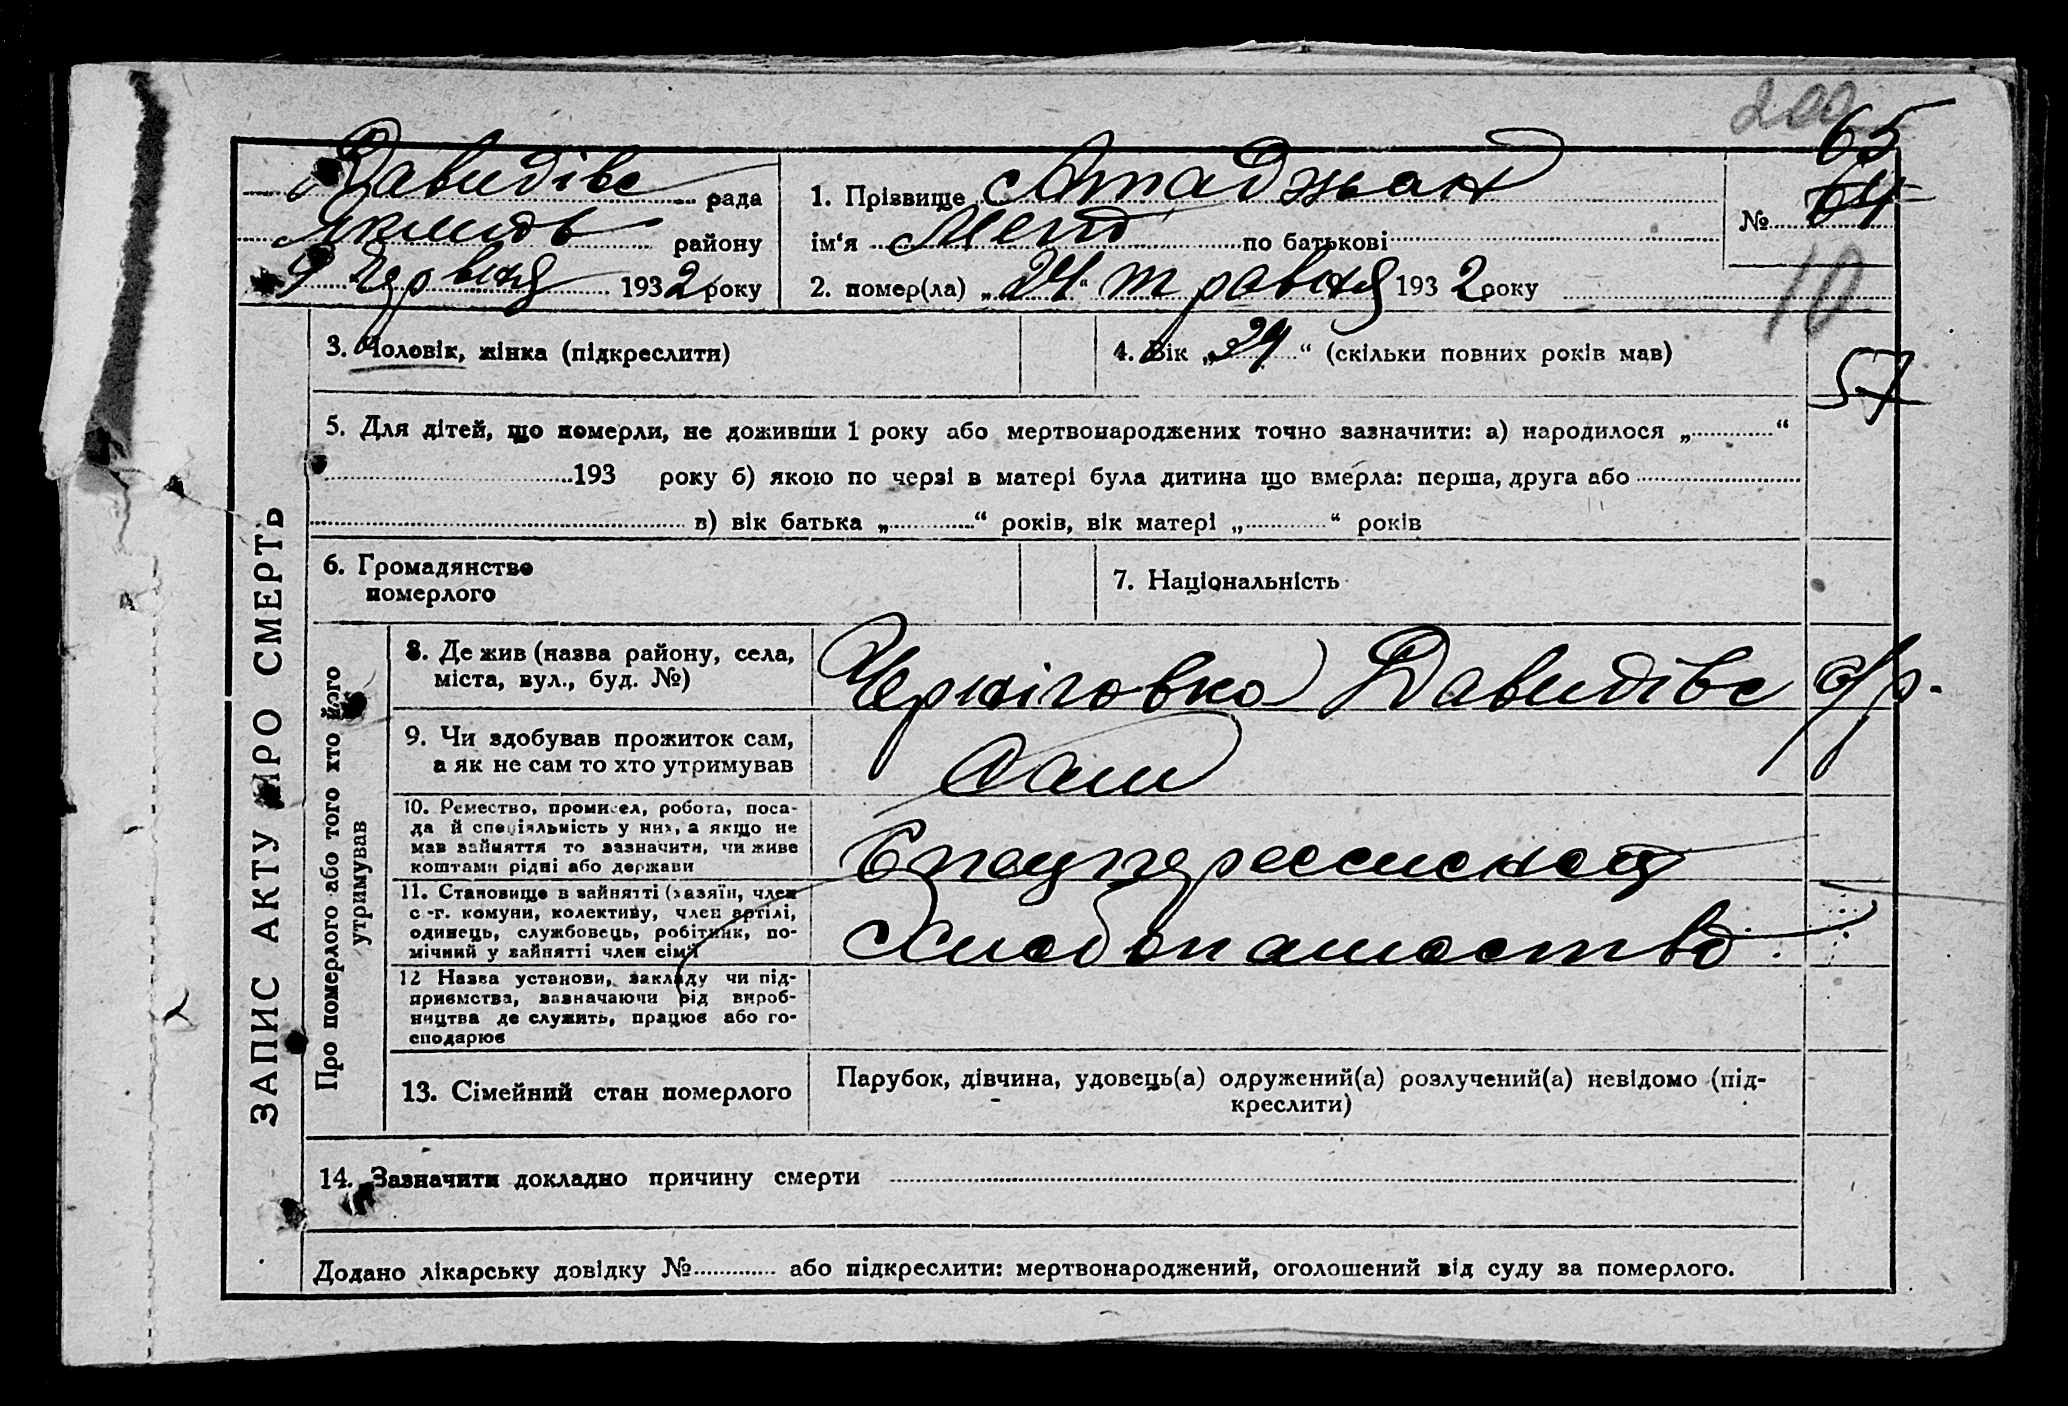 202
65
Давидівс рада
Якимів району
9 Червня 1932 року
1. Прізвище Атаджьан
ім'я по батькові
№ 64
2. помер(ла) „24“ травня 1932 року
10
3. Чоловік, жінка (підкреслити)
4. Вік „29“ (скільки повних років мав)
57
5. Для дітей, що померли, не доживши 1 року або мертвонароджених точно зазначити: а) народилося „ “
193 року б) якою по черзі в матері була дитина що вмерла: перша, друга або
в) вік батька „ “ років, вік матері „ “ років
6. Громадянство
померлого
7. Національність
ЗАПИС АКТУ ПРО СМЕРТЬ
Про померлого або того хто його
утримував
8. Де жив (назва району, села,
міста, вул., буд. №)
Черніговка Давидівс с/р.
9. Чи здобував прожиток сам,
а як не сам то хто утримував
Сам
10. Ремество, промисел, робота, поса-
да й спеціяльність у них, а якщо не
мав зайняття то зазначити, чи живе
коштами рідні або держави
11. Становище в зайнятті (хазяїн, член
с.-г. комуни, колективу, член артілі,
одинець, службовець, робітник, по-
мічний у зайнятті член сім'ї
Хлебопашество
12 Назва установи, закладу чи під-
приємства, зазначаючи рід вироб-
ництва де служить, працює або го-
сподарює
13. Сімейний стан померлого
Парубок, дівчина, удовець(а) одружений(а) розлучений(а) невідомо (під-
креслити)
14. Зазначити докладно причину смерти
Додано лікарську довідку № або підкреслити: мертвонароджений, оголошений від суду за померлого.